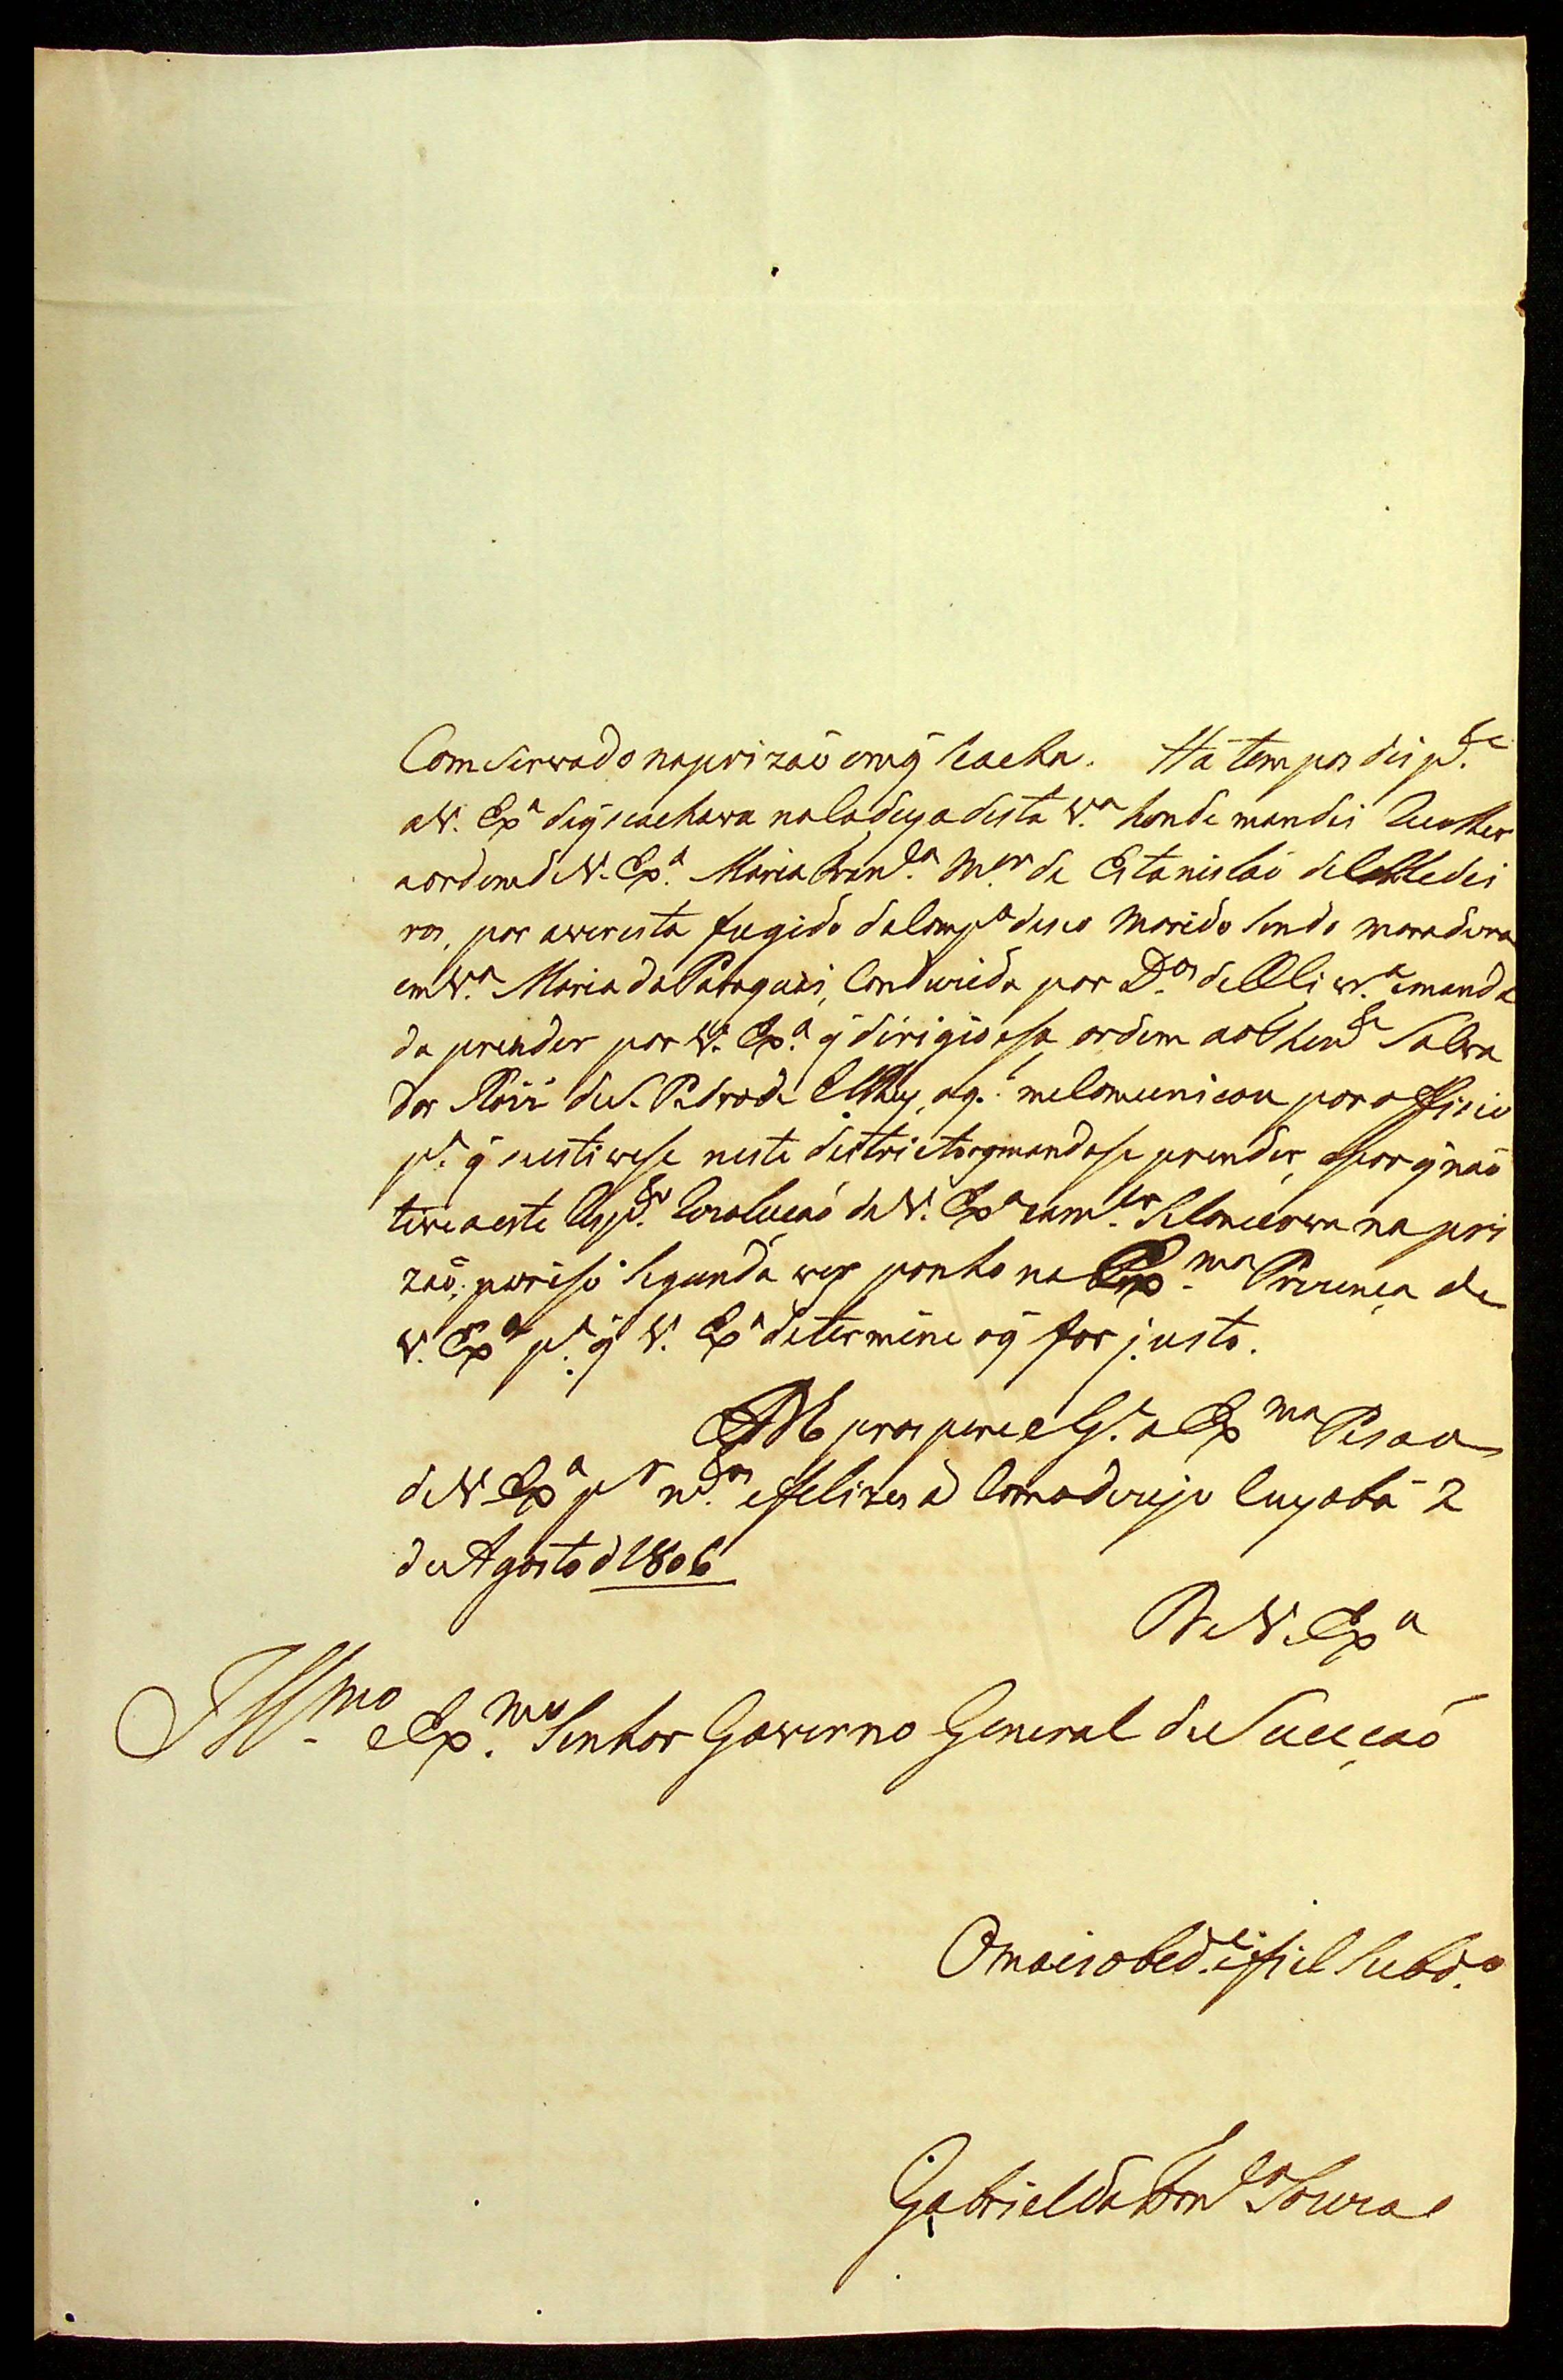 Comservado naprizaõ emq̃ seacha. Ha tempos dei p.te
aV. Exa deq̃ seachava naCadeya desta V.a honde mandei Recolher
aordem deV. Ex.a Maria M.er de Estanisláo deMedei
ros, por averesta fugido daComp.a deseo Marido sendo moradora
em V.a Maria do Paraguai, Conduzida por D.os deOliv.a emanda
da prender por V. Ex.a q̃ dirigio esa ordem ao Then.te Salva
dor Róiz de S. Pedro de El Rey, oq.l meComunicou por officio
p.a q̃ seestivese neste districto mandase prender, epor q̃ naõ
tive a este resp.to Rezoluçaõ de V. Exa eam.er seConserva na pri
zaõ; poriso segunda vez ponho na Ex.ma Prezença de
V. Exa p.a q̃ V. Exa determine oq̃ for justo.
DEs prospere eG.e a Exma Pesoa
deV. Exa p.r m.tos efelizes a Como dezejo Cuyabá 2
de Agosto d 1806
De V. Exa
Illmo eExmo Senhor Governo General de Suceçaõ
Omais obed.e efiel subd.o
Gabriel da Souza